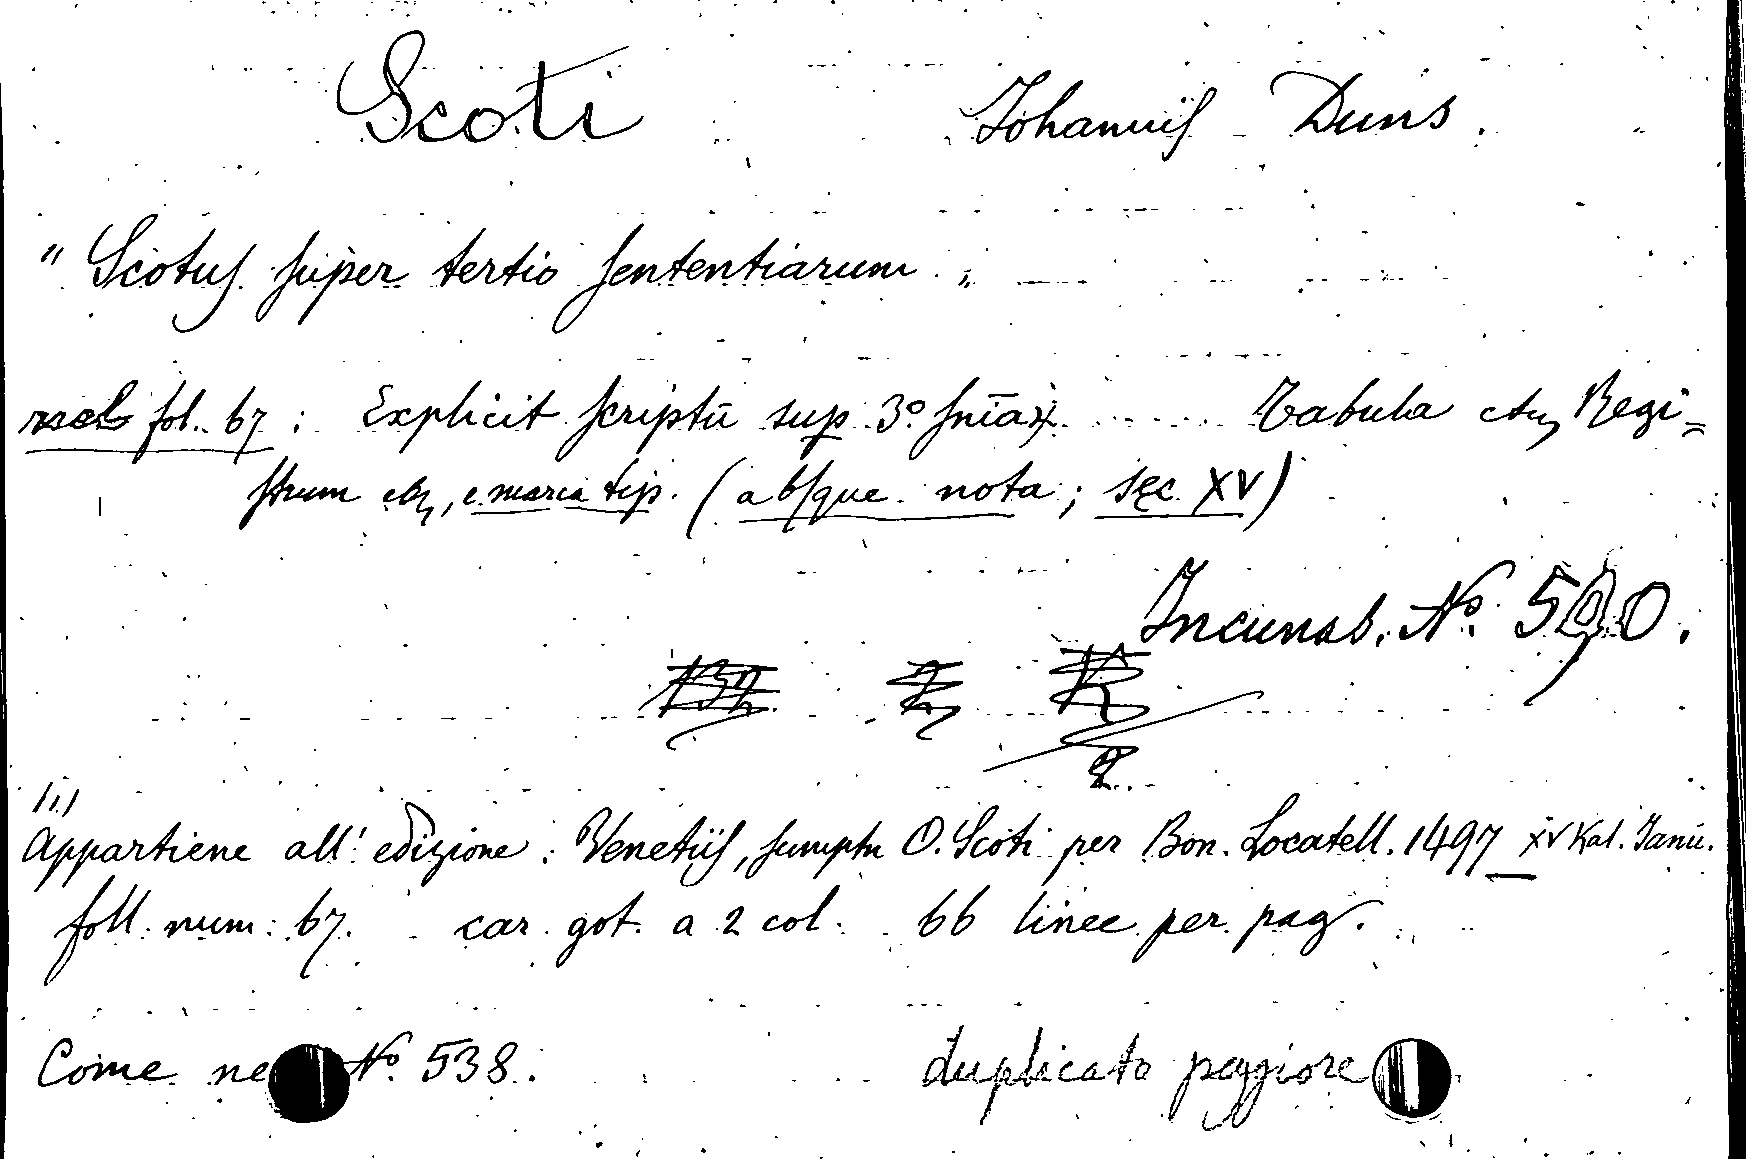 Scoti Johannis Duns.
"Scotus super tertio sententiarum"
fol. 67: Explicit scriptū sup 3º snīaꝝ ...... Tabula etc, Regi=
strum etc, e marca tip. (absque nota; sec XV)
Incunab. Nº 590.
Appartiene all' edizione: Venetiis, sumptu O. Scoti per Bon. Locatell. 1497 XV Kal. Janu.
foll. num: 67. car. got. a 2 col. 66 linee per pag.
Come nel Nº 538. duplicato peggiore